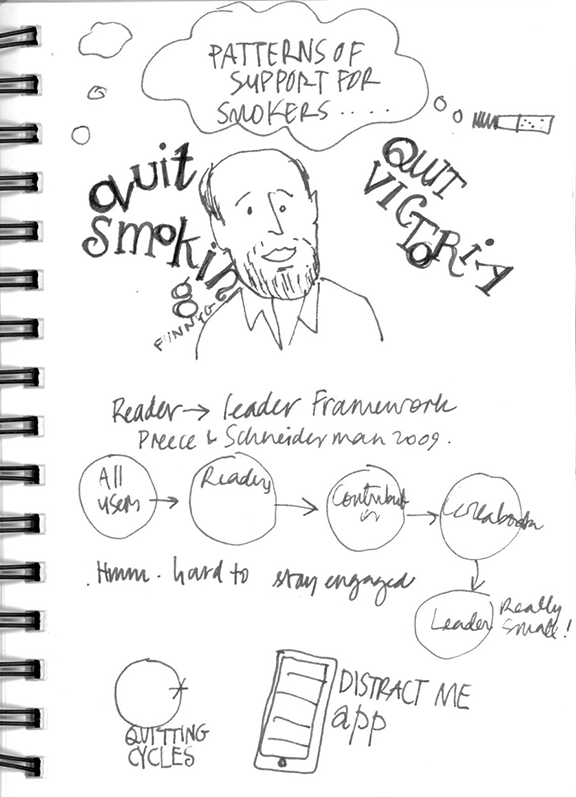 PATTERNS OF
SUPPORT FOR
SMOKERS.....
Quit
Smoking
QUIT
VICTORIA
Reader → leader Framework
Preece & Schneiderman 2009.
All
users
Readers
Collaborator
Leader
Really
small!
.Hmm. hard to stay engaged
QUITTING
CYCLES
DISTRACT ME
app